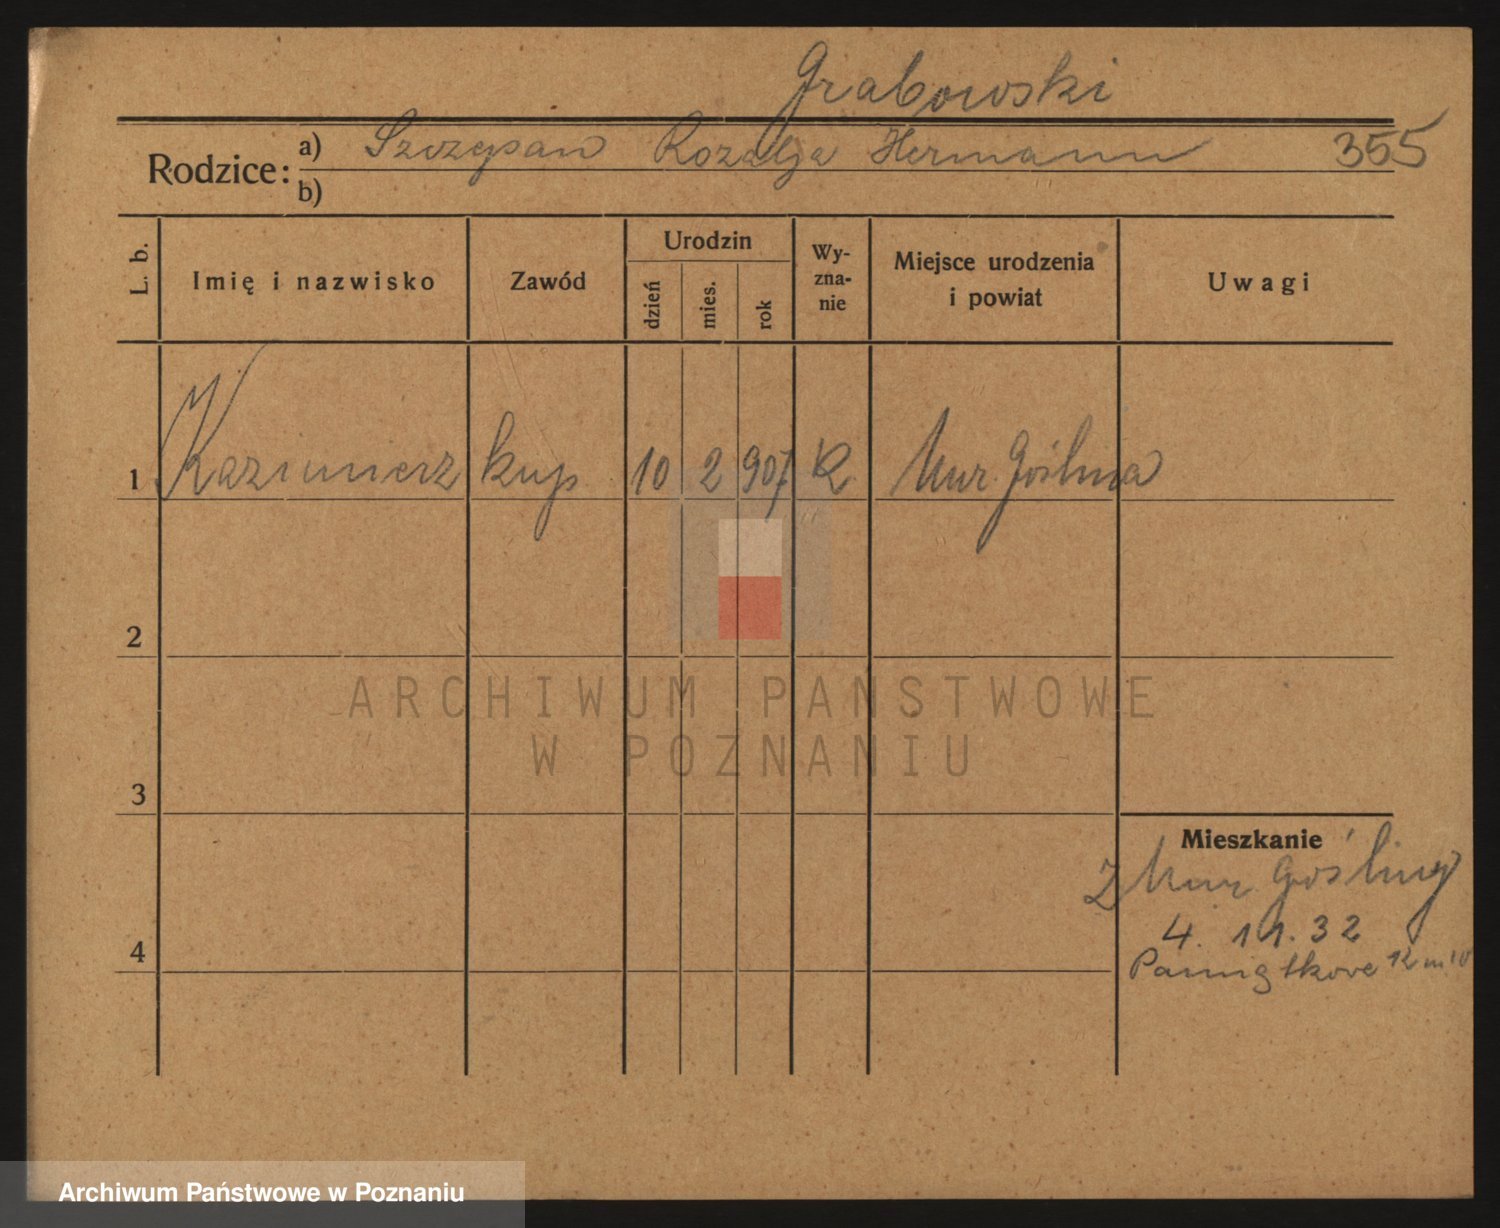 Grabowski
Rodzice: a) Szczepan Rozalja Hermann 355
b)
L. b.
Imię i nazwisko
Zawód
Urodzin
dzień
mies.
rok
Wy-
zna-
nie
Miejsce urodzenia
i powiat
Uwagi
1 Kazimierz kup 10 2 907 K Mur. Goślina
2
3
4
Mieszkanie
Z Mur. Gośliny
4. 11. 32
Pamiątkowa 12 m 10
ARCHIWUM PAŃSTWOWE
W POZNANIU
Archiwum Państwowe w Poznaniu